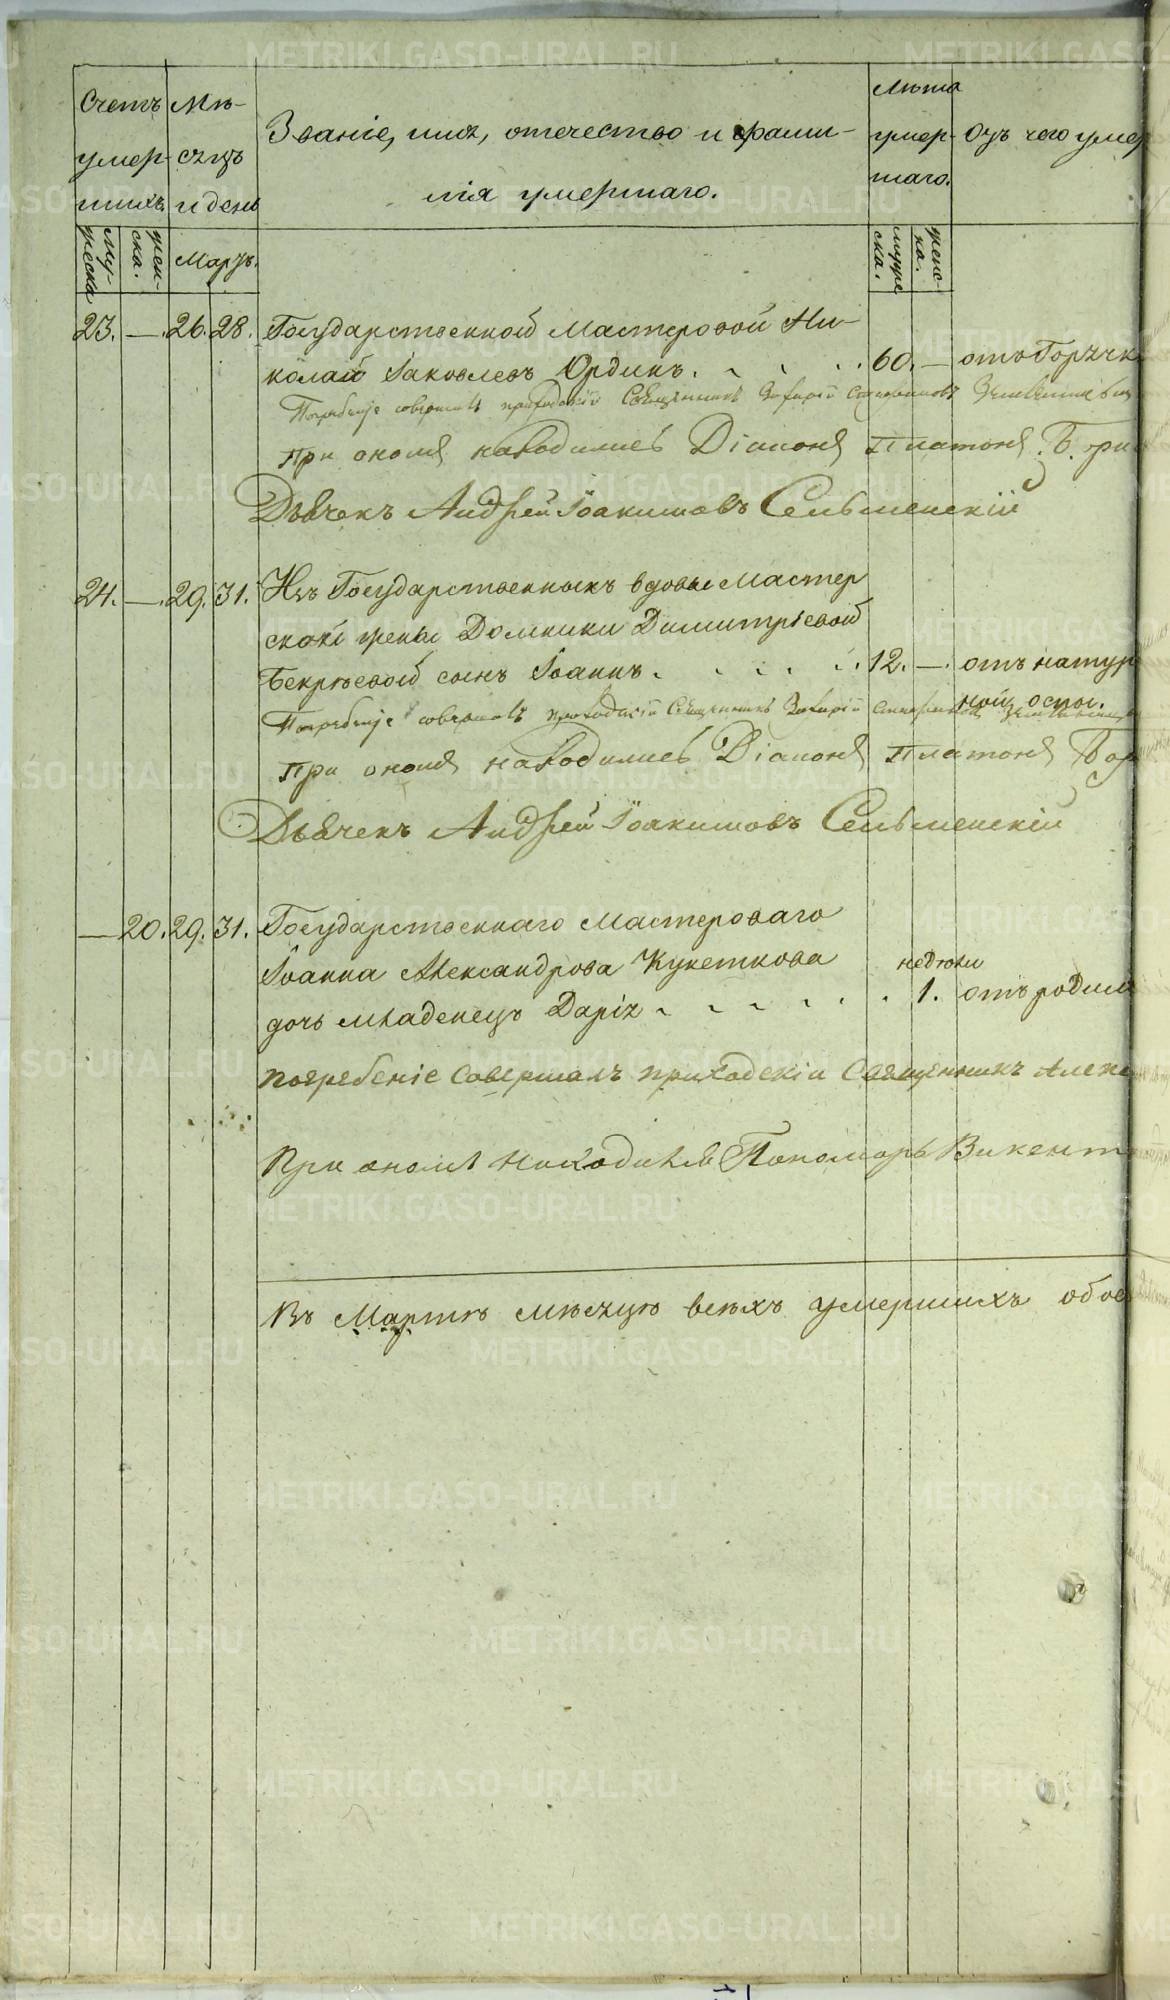 Счетъ умер- шихъ.
Мѣ- сяцъ и день
Званіе, имя, отечество и фами-
лія умершаго.
Лѣта умер- шаго.
Отъ чего умер
му- жеска
жен- ска.
Мартъ.
муже ска.
женс- ка.
23. — 26. 28. Государственной Мастеровой Ни-
колай Іаковлевъ Ординъ. 60. — отъ Горячк
Погребеніе совершалъ приходскій Священникъ Захарій
При ономъ находились Діаконъ Платонъ
Дьячекъ Андрей Іоакимовъ Сельменскій
24. — 29. 31. Изъ Государственныхъ вдовы Мастер
ской жены Домники Димитріевой
Бекряевой сынъ Іоаннъ. 12. — отъ натур
ной оспы.
Погребеніе совершалъ приходскій Священникъ Захарій
При ономъ находились Діаконъ Платонъ
Дьячекъ Андрей Іоакимовъ Сельменскій
— 20. 29. 31. Государственнаго Мастероваго
Іоанна Александрова Кукеткова недѣли
дочь младенецъ Дарія 1. отъ родим
Погребеніе совершалъ приходскій Священникъ Алекс
При ономъ находился Пономарь Викент
Въ Мартѣ мѣсяцѣ всѣхъ умершихъ обое
METRIKI.GASO-URAL.RU